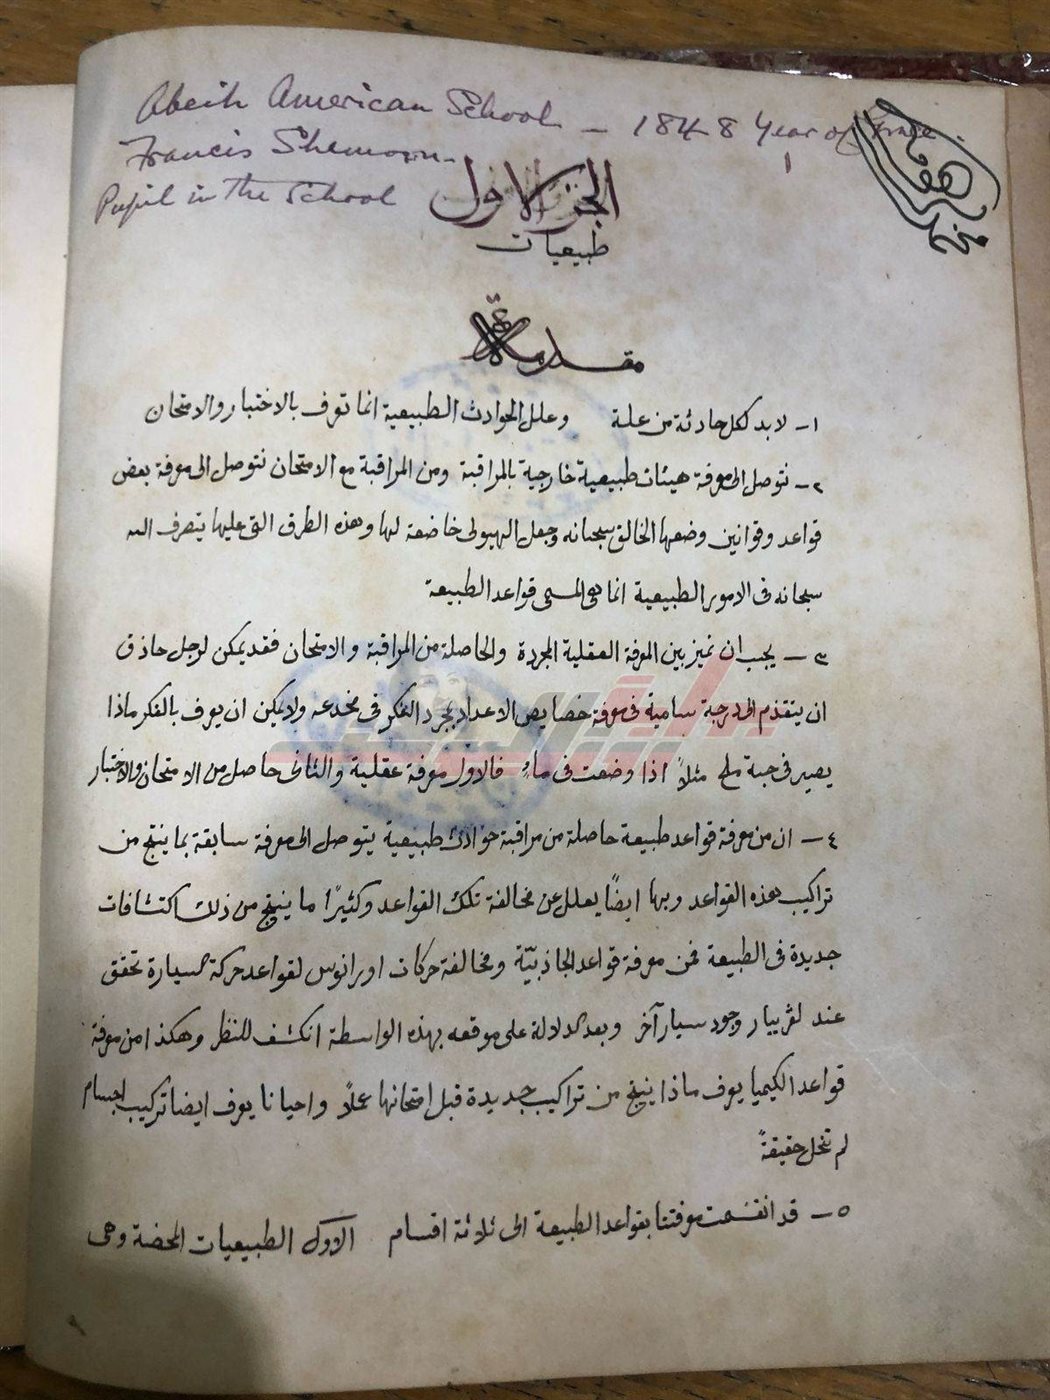 Abeih American School – 1848 Year of Grace
Francis Shemoun
Pupil in the School
1
الجزء الاول
طبيعيات
مقدمة
١ – لا بد لكل حادثة من علة وعلل الحوادث الطبيعية انما تعرف بالاختبار والامتحان
٢ – نتوصل الى معرفة هيئات طبيعية خارجية بالمراقبة ومن المراقبة مع الامتحان نتوصل الى معرفة بعض
قواعد وقوانين وضعها الخالق سبحانه وجعل الهيولى خاضعة لها وهذه الطرق التي عليها يتصرف الله
سبحانه في الامور الطبيعية انما هي المسمى قواعد الطبيعة
٣ – يجب ان نميز بين المعرفة العقلية المجردة والحاصلة من المراقبة والامتحان فقد يمكن لرجل حاذق
ان يتقدم الى درجة سامية في معرفة خصايص الاعداد بمجرد الفكر في مخدعه ولا يمكن ان يعرف بالفكر ماذا
يصير في حبة ملح مثلاً اذا وضعت في ماء فالاول معرفة عقلية والثاني حاصل من الامتحان والاختبار
٤ – ان من معرفة قواعد طبيعة حاصلة من مراقبة حوادث طبيعية يتوصل الى معرفة سابقة بما ينتج من
تراكيب بهذه القواعد وبها ايضًا يعلل عن مخالفة تلك القواعد وكثيرًا ما ينتج من ذلك اكتشافات
جديدة في الطبيعة فمن معرفة قواعد الجاذبيّة ومخالفة حركات اورانوس لقواعد حركة السيارة تحقق
عند لڤريار وجود سيار آخر وبعد الدلالة على موقعه بهذه الواسطة انكشف للنظر وهكذا من معرفة
قواعد الكيميا يعرف ماذا ينتج من تراكيب جديدة قبل امتحانها عملاً واحيانا يعرف ايضا تركيب اجسام
لم تنحل حقيقةً
٥ – قد انقسمت معرفتنا بقواعد الطبيعة الى ثلاثة اقسام الاول الطبيعيات المحضة وهي